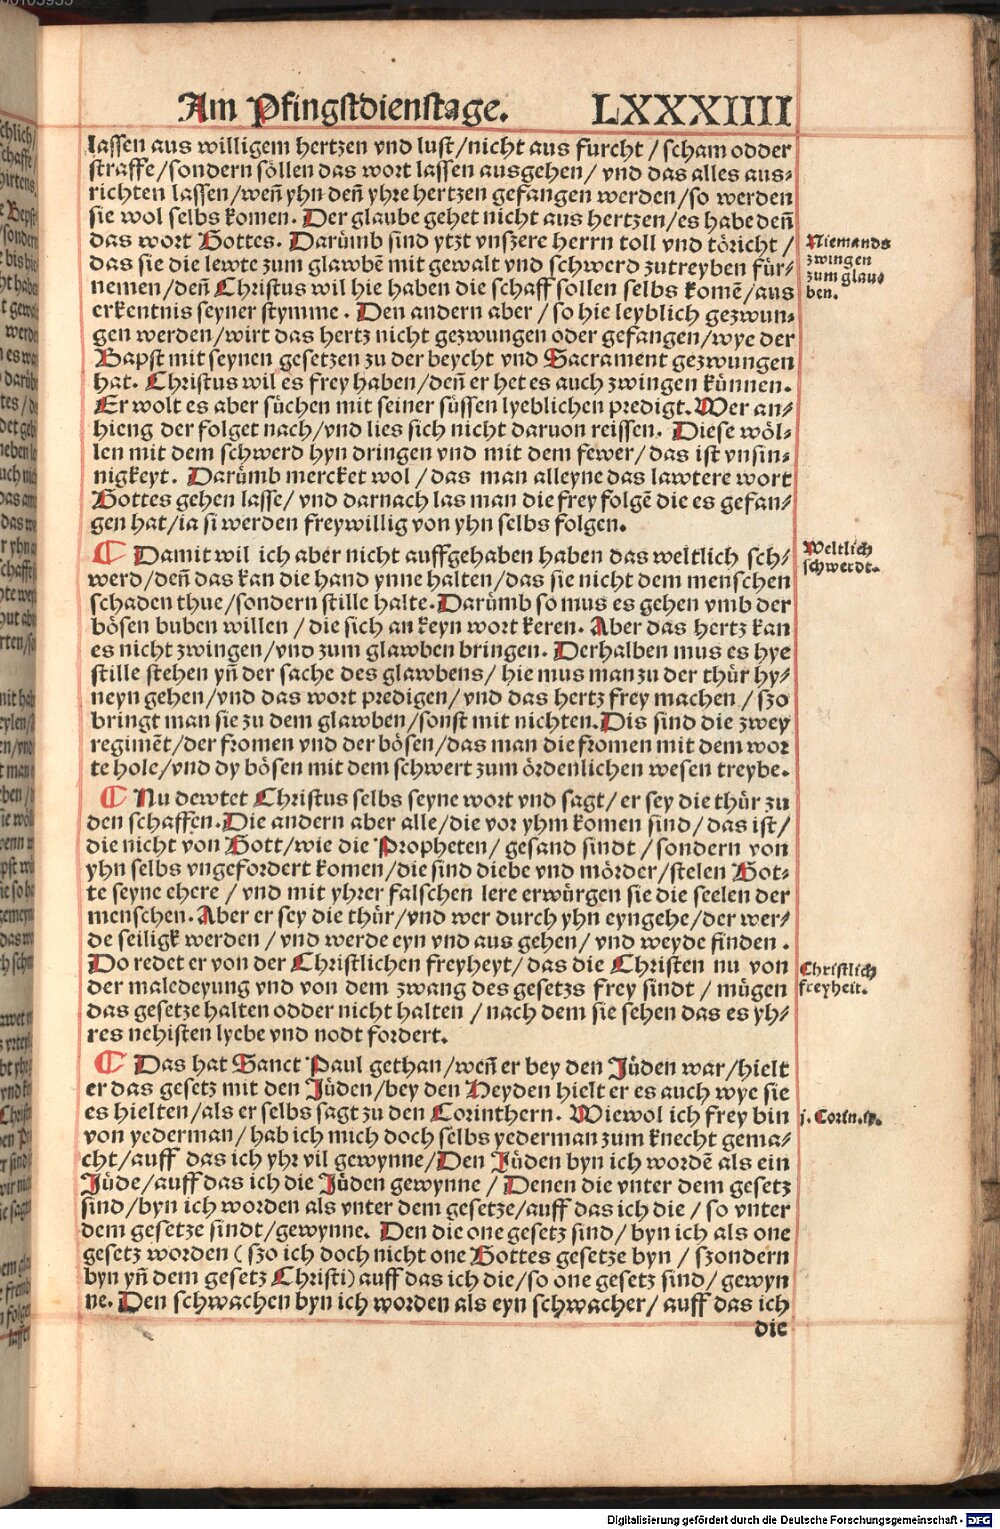 Am Pfingstdienstage. LXXXIIII
lassen aus willigem hertzen vnd lust/nicht aus furcht / scham odder
straffe/sondern söllen das wort lassen ausgehen/ vnd das alles aus⸗
richten lassen/weñ yhn deñ yhre hertzen gefangen werden/so werden
sie wol selbs komen. Der glaube gehet nicht aus hertzen/es habe deñ
das wort Gottes. Darümb sind ytzt vnszere herrn toll vnd töricht /
das sie die lewte zum glawbẽ mit gewalt vnd schwerd zutreyben für⸗
nemen/deñ Christus wil hie haben die schaff sollen selbs komẽ/aus
erkentnis seyner stymme. Den andern aber / so hie leyblich gezwun⸗
gen werden/wirt das hertz nicht gezwungen oder gefangen/wye der
Bapst mit seynen gesetzen zu der beycht vnd Sacrament gezwungen
hat. Christus wil es frey haben/deñ er het es auch zwingen künnen.
Er wolt es aber süchen mit seiner süssen lyeblichen predigt. Wer an⸗
hieng der folget nach/vnd lies sich nicht daruon reissen. Diese wöl⸗
len mit dem schwerd hyn dringen vnd mit dem fewer/das ist vnsin⸗
nigkeyt. Darümb mercket wol /das man alleyne das lawtere wort
Gottes gehen lasse/ vnd darnach las man die frey folgẽ die es gefan⸗
gen hat/ia si werden freywillig von yhn selbs folgen.
Niemands
zwingen
zum glau⸗
ben.
¶ Damit wil ich aber nicht auffgehaben haben das weltlich sch⸗
werd/deñ das kan die hand ynne halten/das sie nicht dem menschen
schaden thue/sondern stille halte. Darümb so mus es gehen vmb der
bösen buben willen / die sich an keyn wort keren. Aber das hertz kan
es nicht zwingen/vnd zum glawben bringen. Derhalben mus es hye
stille stehen yñ der sache des glawbens/ hie mus man zu der thür hy⸗
neyn gehen/vnd das wort predigen/vnd das hertz frey machen / szo
bringt man sie zu dem glawben/sonst mit nichten. Dis sind die zwey
regimẽt/der fromen vnd der bösen/das man die fromen mit dem wor
te hole/vnd dy bösen mit dem schwert zum ördenlichen wesen treybe.
Weltlich
schwerdt.
¶ Nu dewtet Christus selbs seyne wort vnd sagt/ er sey die thür zu
den schaffen. Die andern aber alle/die vor yhm komen sind/ das ist/
die nicht von Gott/wie die Propheten/ gesand sindt / sondern von
yhn selbs vngefordert komen/die sind diebe vnd mörder/stelen Got⸗
te seyne ehere / vnd mit yhrer falschen lere erwürgen sie die seelen der
menschen. Aber er sey die thür/vnd wer durch yhn eyngehe/der wer⸗
de seiligk werden / vnd werde eyn vnd aus gehen/ vnd weyde finden .
Do redet er von der Christlichen freyheyt/ das die Christen nu von
der maledeyung vnd von dem zwang des gesetzs frey sindt / mügen
das gesetze halten odder nicht halten / nach dem sie sehen das es yh⸗
res nehisten lyebe vnd nodt fordert.
Christlich
freyheit.
¶ Das hat Sanct Paul gethan/weñ er bey den Jüden war/hielt
er das gesetz mit den Jüden/bey den Heyden hielt er es auch wye sie
es hielten/als er selbs sagt zu den Corinthern. Wiewol ich frey bin
von yederman/ hab ich mich doch selbs yederman zum knecht gema⸗
cht/auff das ich yhr vil gewynne/Den Jüden byn ich wordẽ als ein
Jüde/auff das ich die Jüden gewynne / Denen die vnter dem gesetz
sind/byn ich worden als vnter dem gesetze/auff das ich die / so vnter
dem gesetze sindt/gewynne. Den die one gesetz sind/ byn ich als one
gesetz worden ( szo ich doch nicht one Gottes gesetze byn / szondern
byn yñ dem gesetz Christi) auff das ich die/so one gesetz sind/ gewyn
ne. Den schwachen byn ich worden als eyn schwacher/ auff das ich
die
j. Corin.ix.
Digitalisierung gefördert durch die Deutsche Forschungsgemeinschaft - DFG